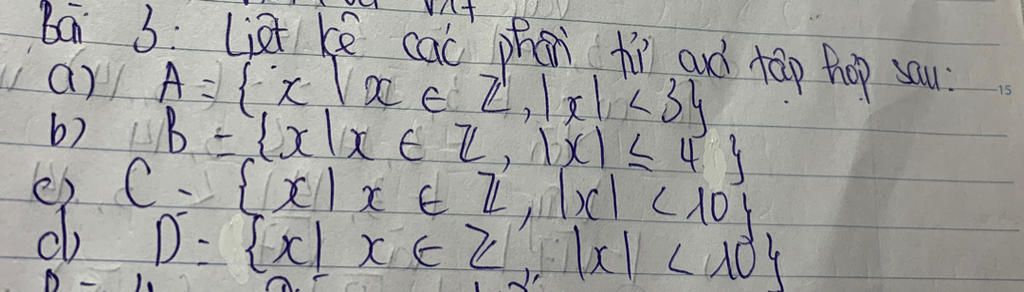 Bài 3: Liệt kê các phần tử của tập hợp sau:
a) A = { x | x ∈ Z, |x| < 3}
b) B = {x | x ∈ Z, |x| ≤ 4 }
c) C = { x | x ∈ Z, |x| < 10}
d) D = {x | x ∈ Z, |x| < 10}
15